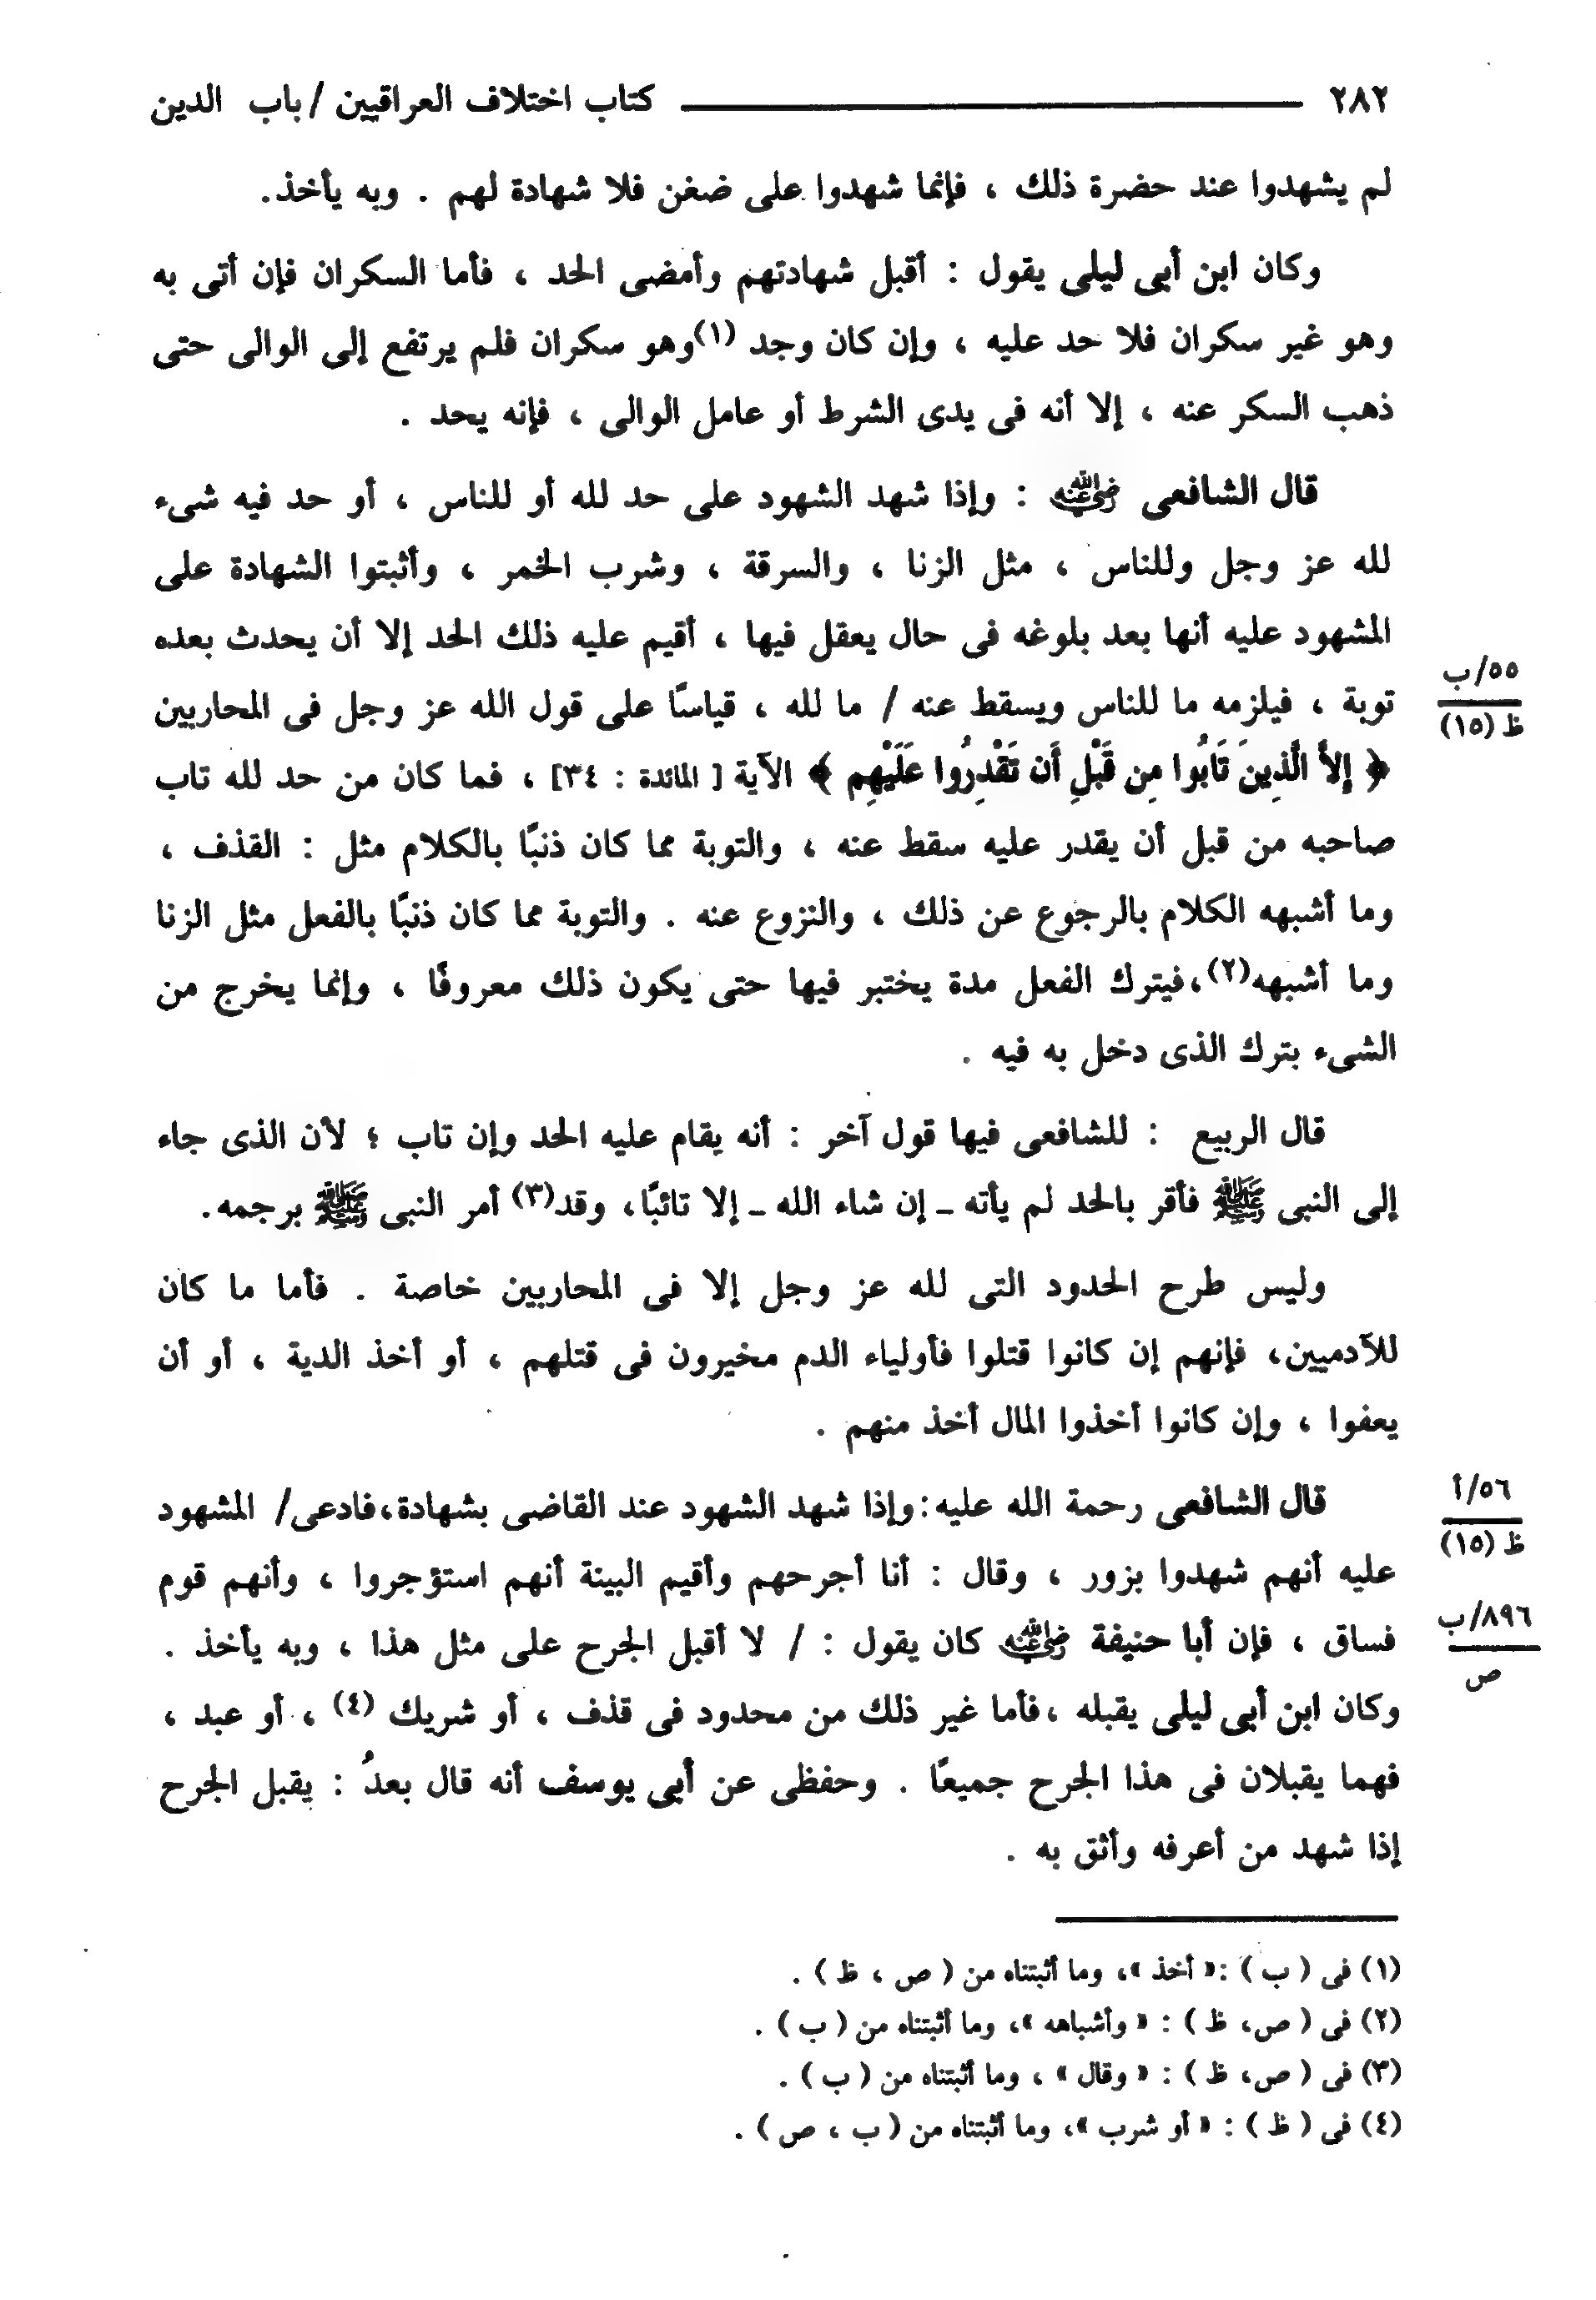 ٢٨٢ كتاب اختلاف العراقيين / باب الدين
لم يشهدوا عند حضرة ذلك ، فإنما شهدوا على ضغن فلا شهادة لهم . وبه يأخذ.
وكان ابن أبى ليلى يقول : أقبل شهادتهم وأمضى الحد ، فأما السكران فإن أتى به
وهو غير سكران فلا حد عليه ، وإن كان وجد (١) وهو سكران فلم يرتفع إلى الوالى حتى
ذهب السكر عنه ، إلا أنه فى يدى الشرط أو عامل الوالى ، فإنه يحد .
قال الشافعى رضي الله عنه : وإذا شهد الشهود على حد لله أو للناس ، أو حد فيه شىء
لله عز وجل وللناس ، مثل الزنا ، والسرقة ، وشرب الخمر ، وأثبتوا الشهادة على
المشهود عليه أنها بعد بلوغه فى حال يعقل فيها ، أقيم عليه ذلك الحد إلا أن يحدث بعده
٥٥/ب
توبة ، فيلزمه ما للناس ويسقط عنه / ما لله ، قياسًا على قول الله عز وجل فى المحاربين
ظ (١٥)
﴿ إِلاَّ الَّذِينَ تَابُوا مِن قَبْلِ أَن تَقْدِرُوا عَلَيْهِم ﴾ الآية [ المائدة : ٣٤] ، فما كان من حد لله تاب
صاحبه من قبل أن يقدر عليه سقط عنه ، والتوبة مما كان ذنبًا بالكلام مثل : القذف ،
وما أشبهه الكلام بالرجوع عن ذلك ، والنزوع عنه . والتوبة مما كان ذنبًا بالفعل مثل الزنا
وما أشبهه(٢)،فيترك الفعل مدة يختبر فيها حتى يكون ذلك معروفًا ، وإنما يخرج من
الشىء بترك الذى دخل به فيه .
قال الربيع : للشافعى فيها قول آخر : أنه يقام عليه الحد وإن تاب ؛ لأن الذى جاء
إلى النبى ﷺ فأقر بالحد لم يأته ـ إن شاء الله ـ إلا تائبًا، وقد(٣) أمر النبى ﷺ برجمه.
وليس طرح الحدود التى لله عز وجل إلا فى المحاربين خاصة . فأما ما كان
للآدميين، فإنهم إن كانوا قتلوا فأولياء الدم مخيرون فى قتلهم ، أو أخذ الدية ، أو أن
يعفوا ، وإن كانوا أخذوا المال أخذ منهم .
٥٦/أ
قال الشافعى رحمة الله عليه:وإذا شهد الشهود عند القاضى بشهادة،فادعى/ المشهود
ظ (١٥)
عليه أنهم شهدوا بزور ، وقال : أنا أجرحهم وأقيم البينة أنهم استؤجروا ، وأنهم قوم
٨٩٦/ب
فساق ، فإن أبا حنيفة رضي الله عنه كان يقول : / لا أقبل الجرح على مثل هذا ، وبه يأخذ .
ص
وكان ابن أبى ليلى يقبله ،فأما غير ذلك من محدود فى قذف ، أو شريك (٤) ، أو عبد ،
فهما يقبلان فى هذا الجرح جميعًا . وحفظى عن أبى يوسف أنه قال بعدُ : يقبل الجرح
إذا شهد من أعرفه وأثق به .
(١) فى ( ب ) :« أخذ »، وما أثبتناه من ( ص ، ظ ) .
(٢) فى ( ص، ظ ) : « وأشباهه »، وما أثبتناه من ( ب ) .
(٣) فى ( ص، ظ ) : « وقال » ، وما أثبتناه من ( ب ) .
(٤) فى ( ظ ) : « أو شرب »، وما أثبتناه من ( ب ، ص ) .